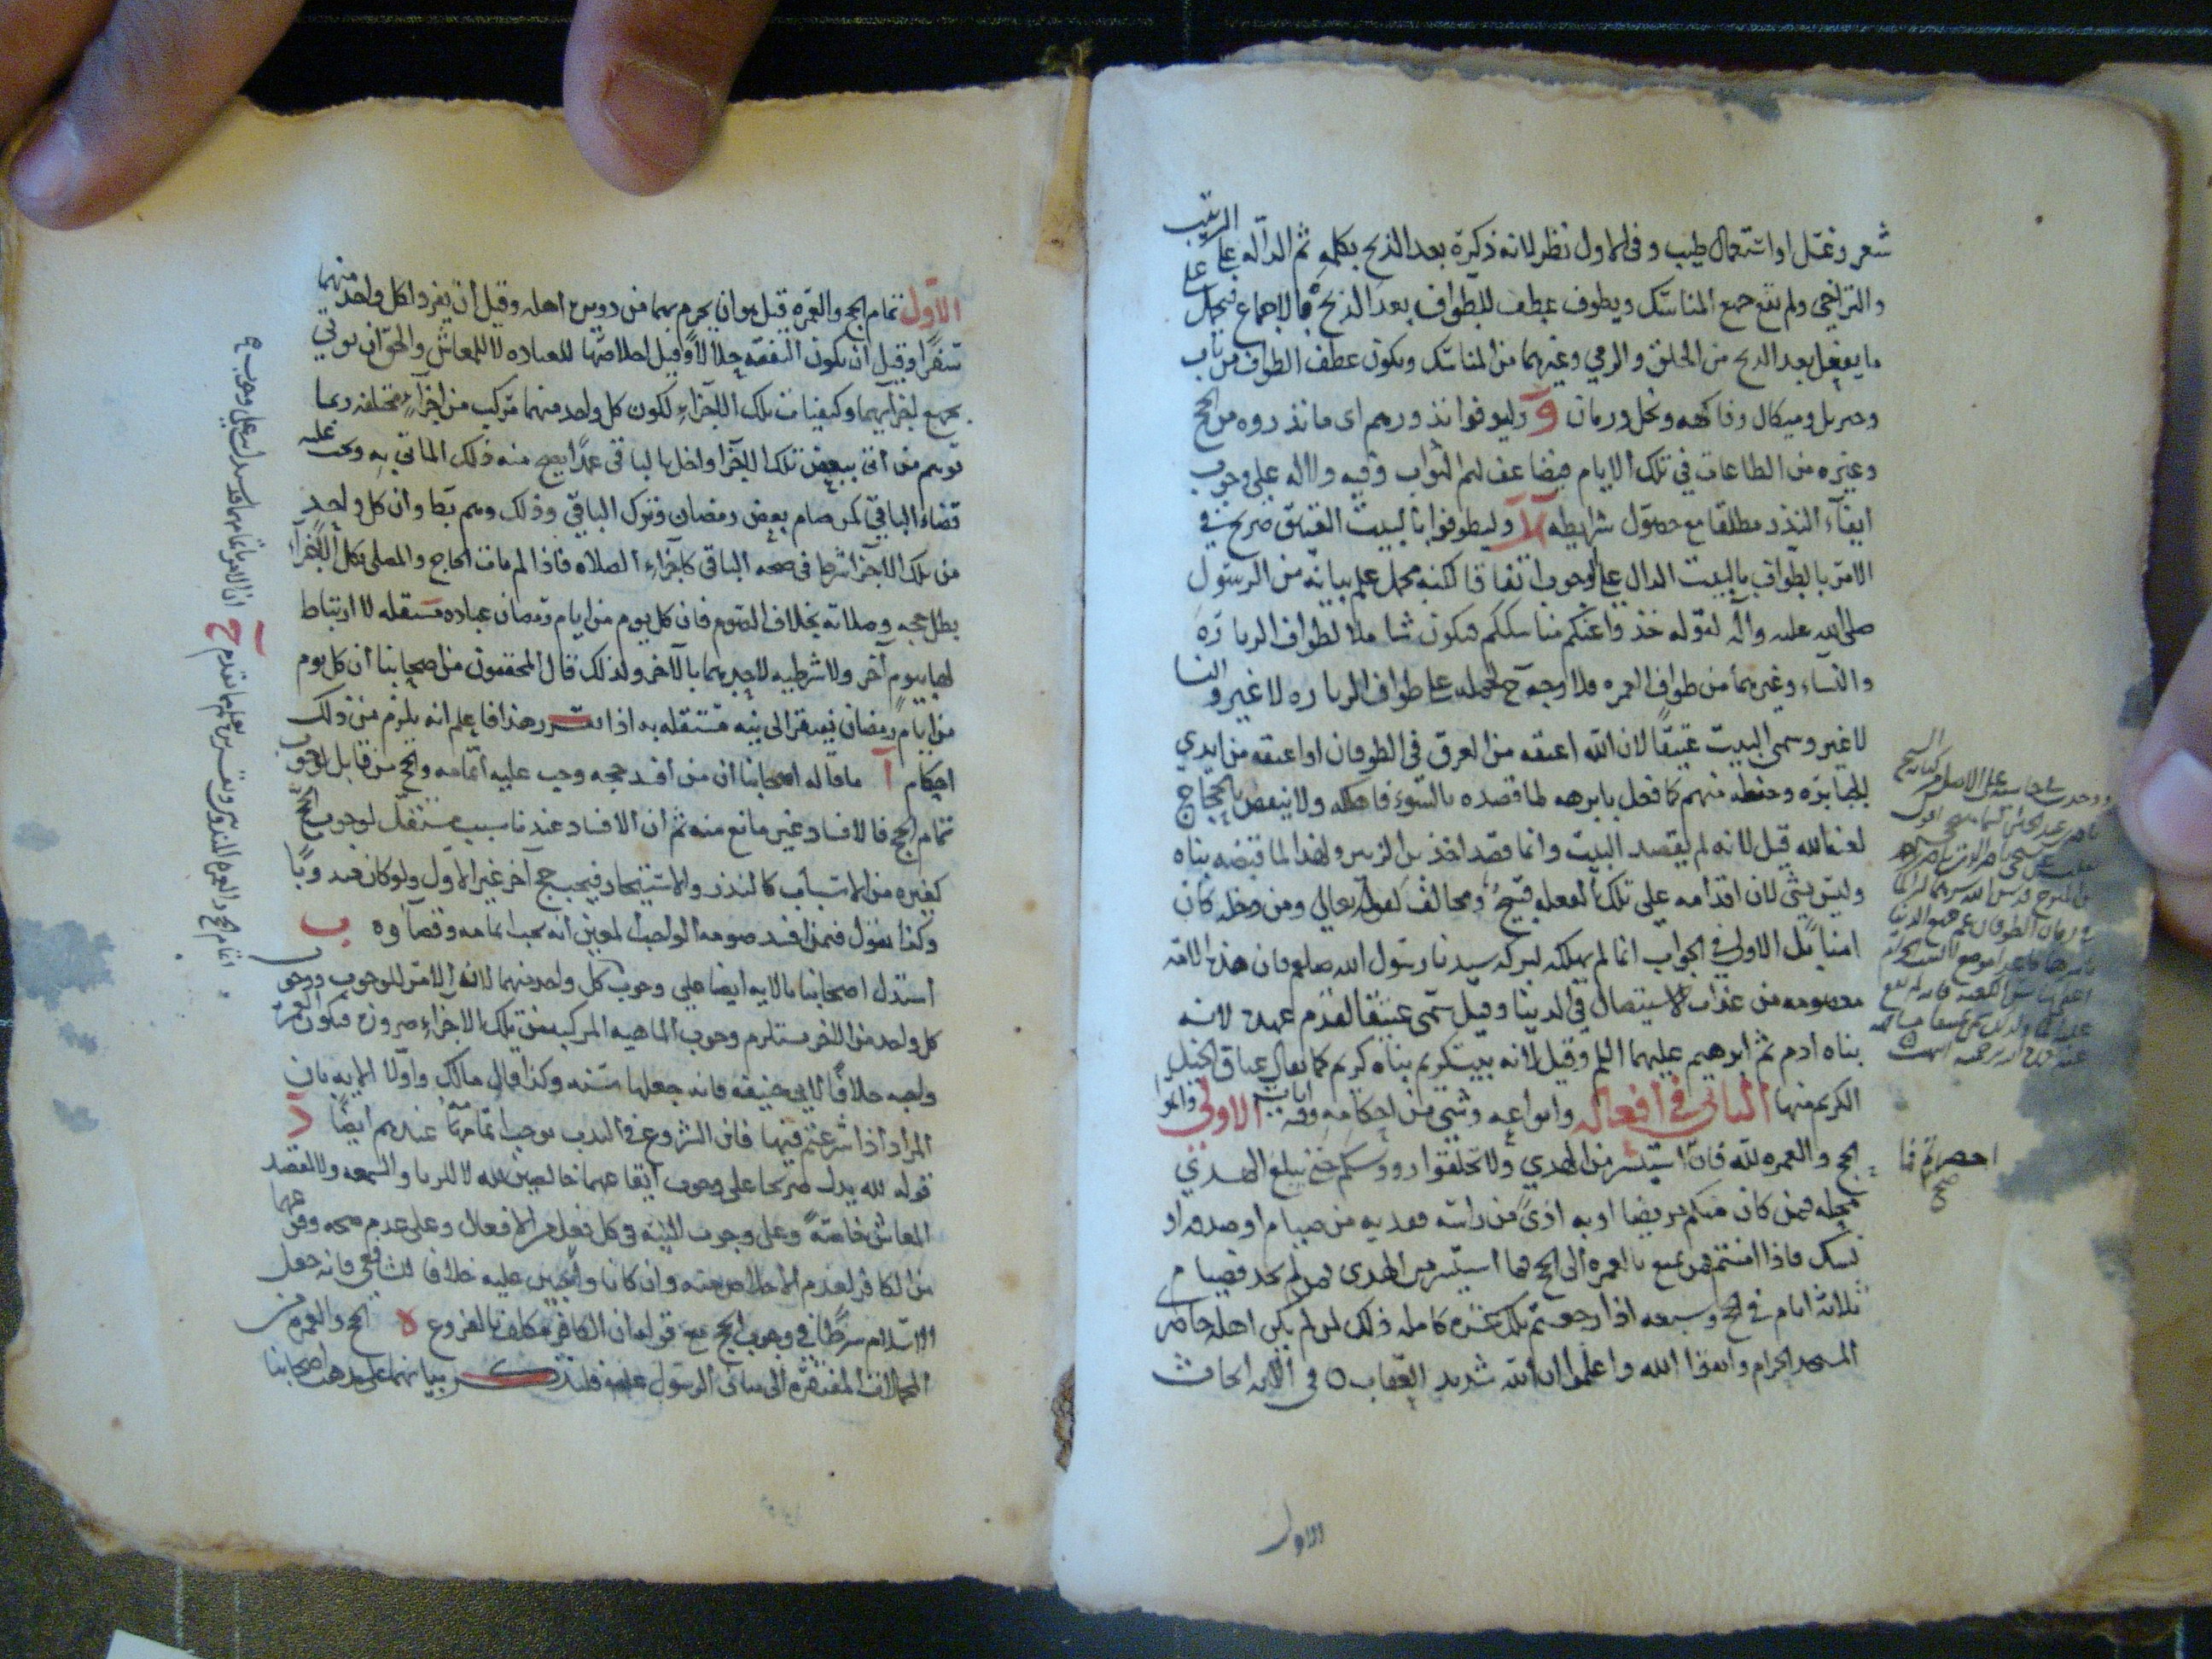 شعر وغسل او استعمال طيب وفى الاول نظر لانه ذكره بعد الذبح بكلمه ثم الدآله على الترتيب
والتراخى ولم يقع جميع المناسك ويطوف عطف للطواف بعد الذبح فبالاجماع فيحمل على
ما يفعل بعد الذبح من الحلق والرمى وغيرهما من المناسك ويكون عطف الطواف من باب
وجبريل وميكال وفاكهه ونخل ورمان وَ وليوفوا نذورهم اى ما نذروه من الحج
وغيره من الطاعات فى تلك الايام فيضاعف لهم الثواب وفيه دلاله على وجوب
ايفآء النذر مطلقا مع حصول شرايطه وليطوفوا بالبيت العتيق صريح فى
الامر بالطواف بالبيت الدال على الوجوب اتفاقا لكنه مجمل علم بيانه من الرسول
صلى الله عليه وآله لقوله خذوا عنى مناسككم فيكون شاملا لطواف الزياره
والنساء وغيرهما من طواف العمره فلا وجه ح لحمله على طواف الزياره لا غير والنسا
لا غير وسمى البيت عتيقًا لان الله اعتقه من الغرق فى الطوفان او اعتقه من ايدى
الجبابره وحفظه منهم كما فعل بابرهه لما قصده بالسوء فاهلكه ولا ينقض بالحجاج
لعنه الله قيل لانه لم يقصد البيت وانما قصد اخذ بن الزبير ولهذا لما قبضه بناه
وليس بشى لان اقدامه على تلك الفعله قبيح ومخالف لقوله تعالى ومن دخله كان
امنا بَل الاولى فى الجواب انما لم يهلكه لبركه سيدنا رسول الله صلعم فان هذه الامه
معصومه من عذاب الاستيصال فى الدنيا وقيل سمى عتيقا لقدم عهده لانه
بناه ادم ثم ابرهيم عليهما السلم وقيل لانه بيت كريم بناه كريم كما يقال عتاق الخيل
الكريم منها الثانى فى افعاله وانواعه وشئ من احكامه وفيه ايات الاولى واتموا
الحج والعمره لله فان استيسر من الهدي ولا تحلقوا رووسكم حتى يبلغ الهدي
محله فمن كان منكم مريضا او به اذىً من راسه ففديه من صيام او صدقه او
نسك فاذا امنتم فمن تمتع بالعمره الى الحج فما استيسر من الهدى فمن لم يجد فصيام
ثلاثه ايام فى الحج وسبعه اذا رجعتم تلك عشره كامله ذلك لمن لم يكن اهله حاضرى
المسجد الحرام واتقوا الله واعلموا ان الله شديد العقاب ٥ فى الايه ابحاث
احصرتم فما
صح
الاول
الاوّل تمام الحج والعمره قيل هو ان يحرم بهما من دويره اهله وقيل ان يفرد لكل واحد منهما
سفرًا وقيل ان تكون النفقه حلالا وقيل اخلاصهما للعباده لا للمعاش والحق ان يوتي
بجميع اجزايهما وكيفيات تلك الاجزاءِ لكون كل واحد منهما مركب من اجزاءٍ مختلفه ربما
توهم من اتى ببعض تلك الاجزا واخل بالباقى عمدًا يصح منه ذلك الماتى به ويجب عليه
قضاء الباقى كمن صام بعض رمضان وترك الباقى وذلك وهم بَطا وان كل واحدٍ
من تلك الاجزا شرطا فى صحه الباقى كاجزاءِ الصلاه فاذا لم يات الحاج والمصلى بكل الاجزاء
بطل حجه وصلاته بخلاف الصوم فان كل يوم من ايام رمضان عباده مستقله لا ارتباط
لها بيوم آخر ولا شرطيه لاحديهما بالآخر ولذلك قال المحققون من اصحابنا ان كل يوم
من ايام رمضان يفتقر الى نيه مستقله به اذا تقرر هذا فاعلم انه يلزم من ذلك
احكام آ ما قاله اصحابنا ان من افسد حجه وجب عليه اتمامه والحج من قابل لوجوب
تمام الحج فالافساد غير مانع منه ثم ان الافساد عندنا سبب مستقل لوجوب الحج
كغيره من الاسباب كالنذر والاستيجار فيجب حج آخر غير الاول ولو كان مندوبًا
وكذا نقول فيمن افسد صومه الواجب المعين انه يجب اتمامه وقضاوه ب
استدل اصحابنا بالايه ايضا على وجوب كل واحد منهما لانه الامر للوجوب ووجوب
كل واحد من الاجزا مستلزم وجوب الماهيه المركبه من تلك الاجزاءِ ضروره فيكون العمره
واجبه خلافًا لابى حنيفه فانه جعلها سنه وكذا قال مالك واوّلا الايه بان
المراد اذا شرعتم فيها فان الشروع فى الندب يوجب اتمامها عندهم ايضًا د
قوله لله يدل صريحا على وجوب ايقاعهما خالصين لله لا للريا والسمعه ولا لقصد
المعاش خاصةً وعلى وجوب النيه فى كل فعل من الافعال وعلى عدم صحه وقوعهما
من الكافر لعدم الاخلاص منه وان كانا واجبين عليه خلافا للشافعى فانه جعل
الاسلام شرطًا فى وجوب الحج مع قوله ان الكافر مكلف بالفروع ه الحج والعمره من
المجملات المفتقره الى بيان الرسول فلنذكر بيانهما على مذهب اصحابنا